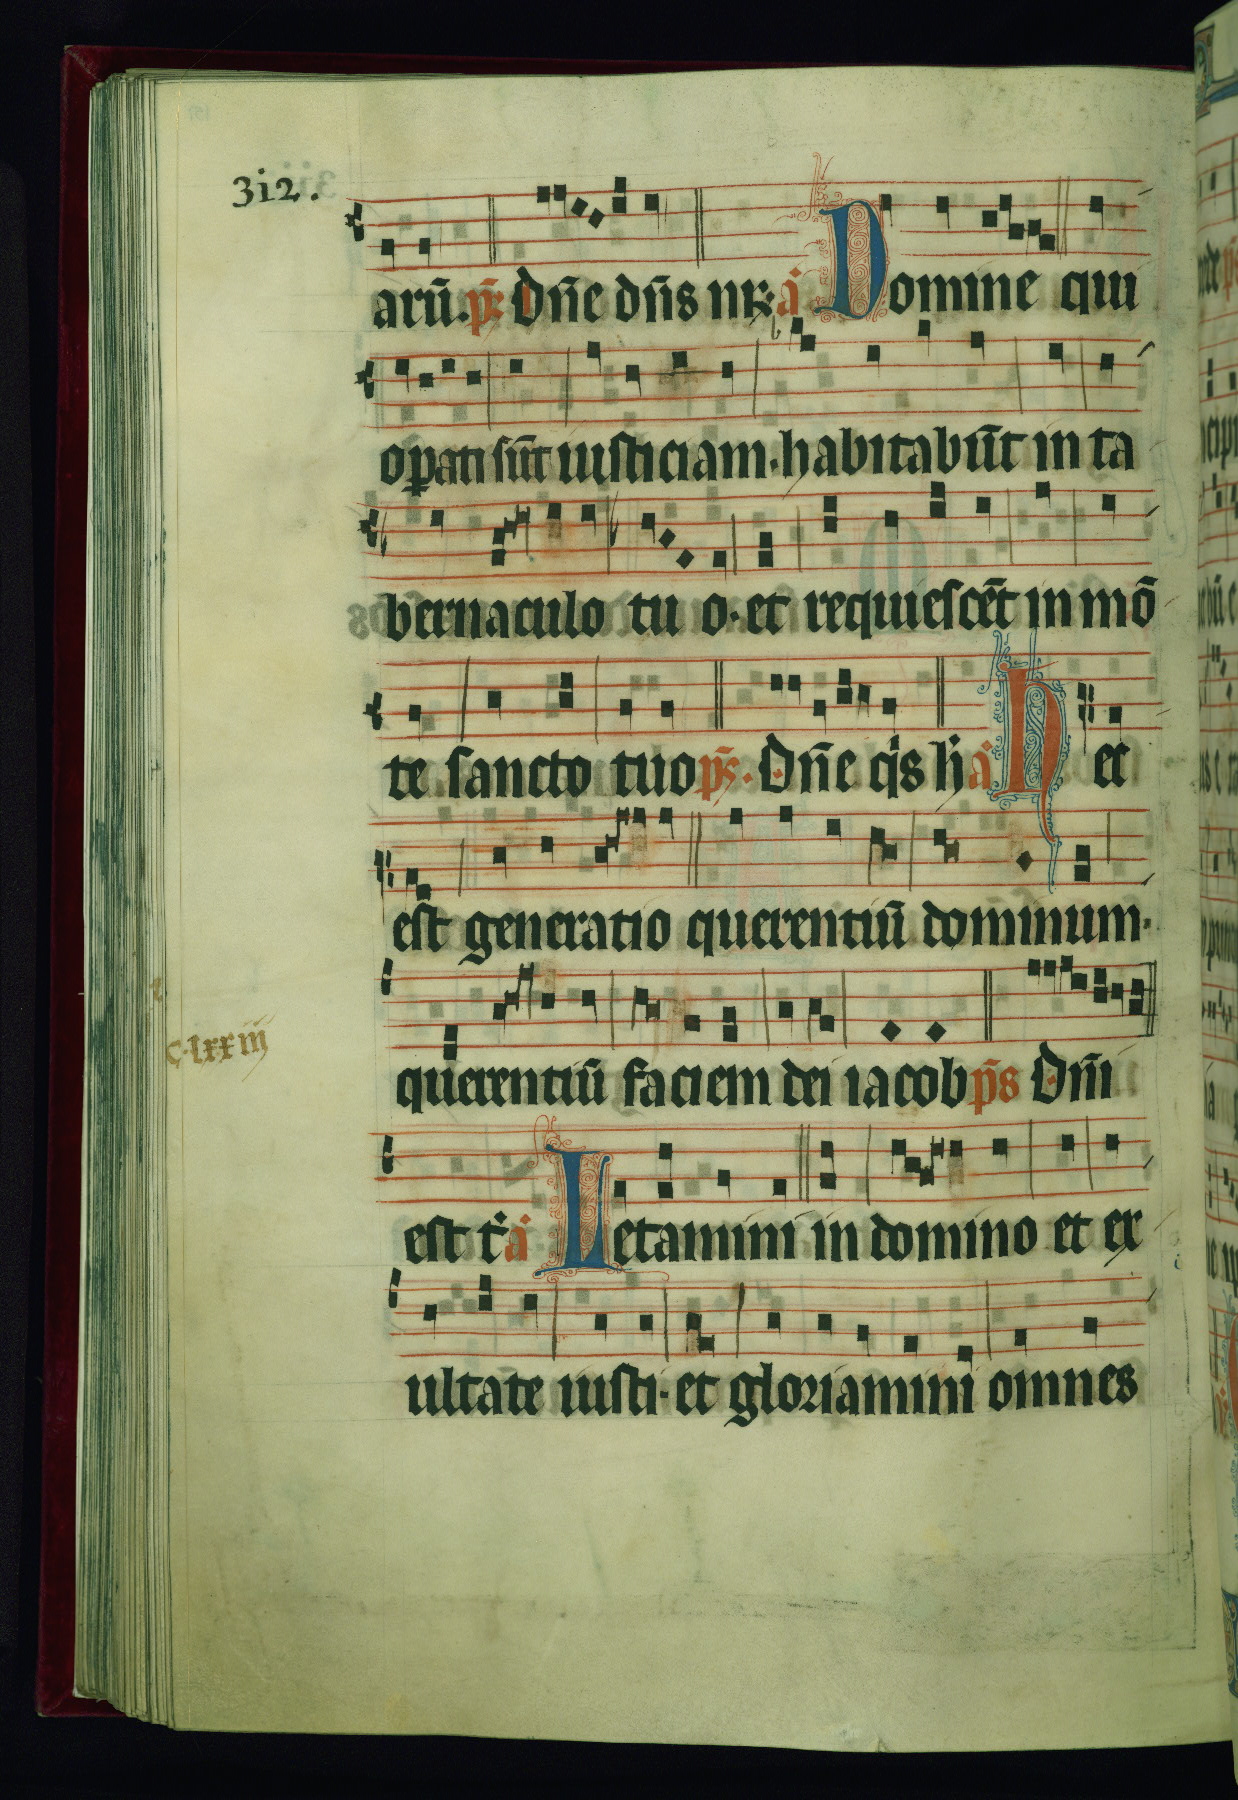 3i2.
arū. ps̄. Dn̄e dn̄s nr̄. a̅ Domine qui
oꝑati sūt iusticiam. habitabūt in ta
bernaculo tu o. et requiescēt in mō
te sancto tuo ps̄. Dn̄e q̇s h̄ a̅ Hec
est generatio querentiū dominum.
querentiū faciem dei iacob ps̄ Dn̄i
C.lxxiiij
est t̄ a̅ Letamini in domino et ex
ultate iusti. et gloriamini omnes